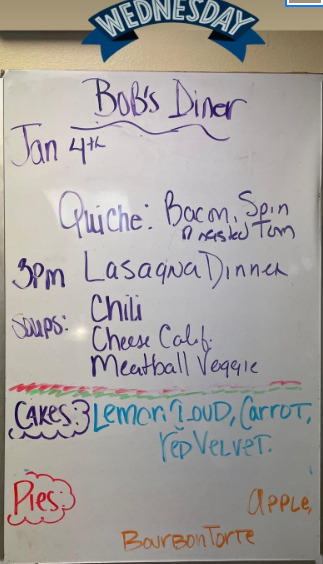 WEDNESDAY
BOB's Diner
Jan 4th
Quiche: Bacon, Spin
Roasted Tom
3pm Lasagna Dinner
Soups: Chili
Cheese Calif.
Meatball Veggie
CAKES: Lemon Cloud, Carrot,
red Velvet.
Pies: APPLE,
Bourbon Torte